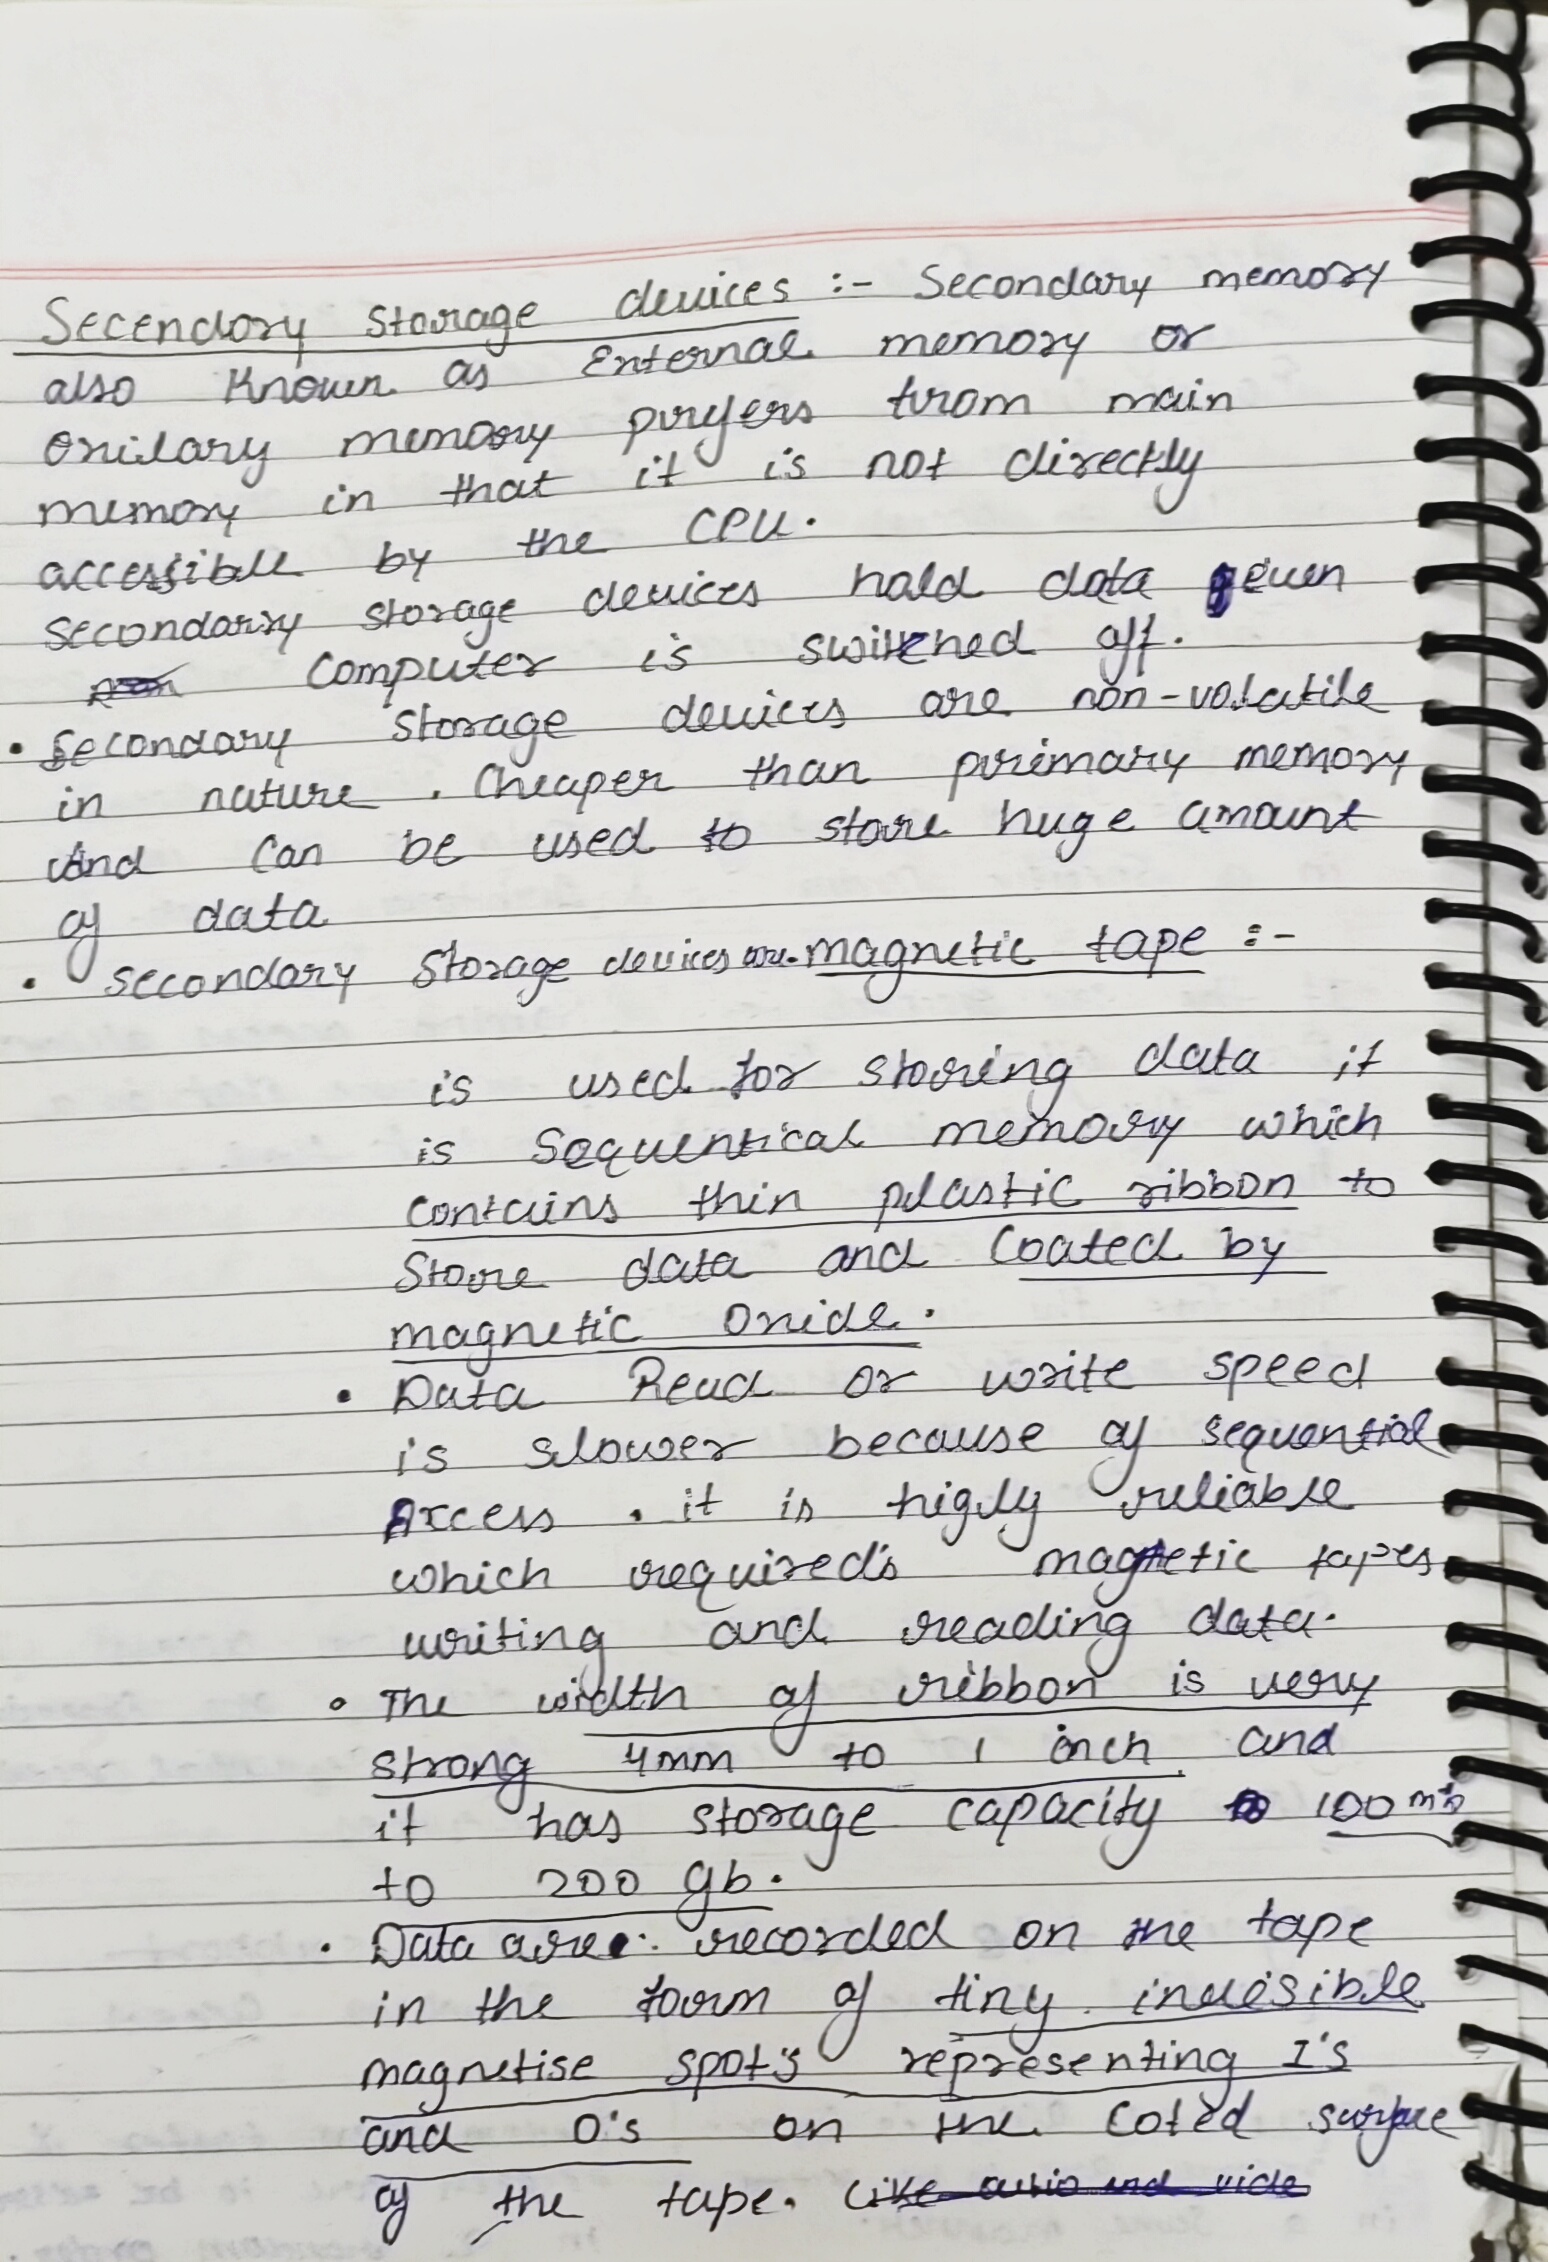 Secendory storage devices :- Secondary memory
also Known as External memory or
Oxilary memory prifers from main
memory in that it is not directly
accessible by the CPU.
secondarry storage devices hold data even
computer is switched off.
• Secondary storage devices are non-volatile
in nature . Cheaper than primary memory
And Can be used to store huge amount
of data
• secondary Storage devices are magnetic tape :-
is used for storing data it
is Sequentical memory which
contains thin plastic ribbon to
Store data and Coated by
magnetic Oxide.
• Data Read or write speed
is slower because of sequential
Access . it is higly reliable
which required's magnetic tapes
writing and reading data.
• The width of ribbon is very
strong 4mm to 1 inch and
it has storage capacity 100 mb
to 200 gb.
• Data are recorded on the tape
in the form of tiny invisible
magnetise spot's representing I's
and 0's on the coted surface
of the tape.